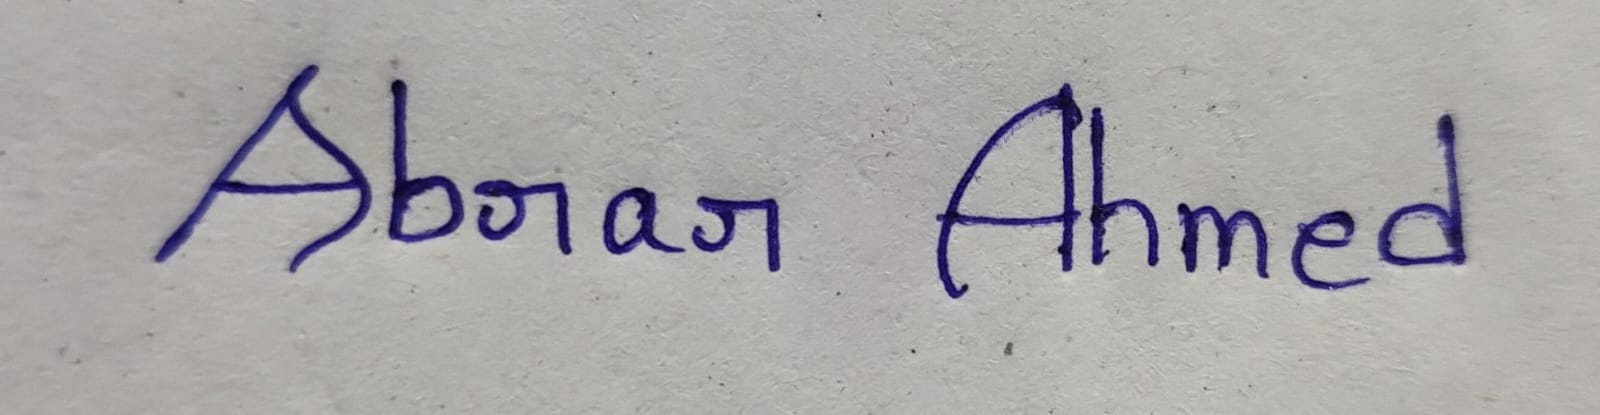 Abrar Ahmed